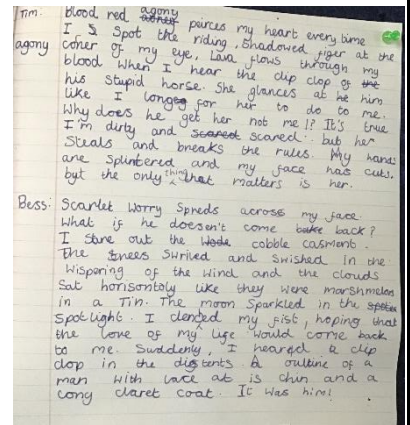 Tim: Blood red agony peirces my heart every time
I Spot the riding, Shadowed figer at the
agony coner of my eye, Lava flows through my
blood when I hear the clip clop of the
his stupid horse. She glances at he him
like I longeg for her to do to me.
Why does he get her not me!? It's true
I'm dirty and scared scared.. but her
Steals and breaks the rules. My hands
are splintered and my face has cuts.
byt the only thing that matters is her.
Bess: Scarlet Worry Spreds across my face.
What if he doesen't come bake back?
I stare out the cobble casment.
The trees Swriled and Swished in the
Wispering of the Wind and the clouds
Sat horisontoly like they were marshmelon
in a Tin. The moon Sparkled in the
Spotlight. I clented my fist, hoping that
the love of my life would come back
to me. Suddenly, I hearad a clip
clop in the distents. A oultine of a
man with lace at is chin and a
long claret coat. It was him!